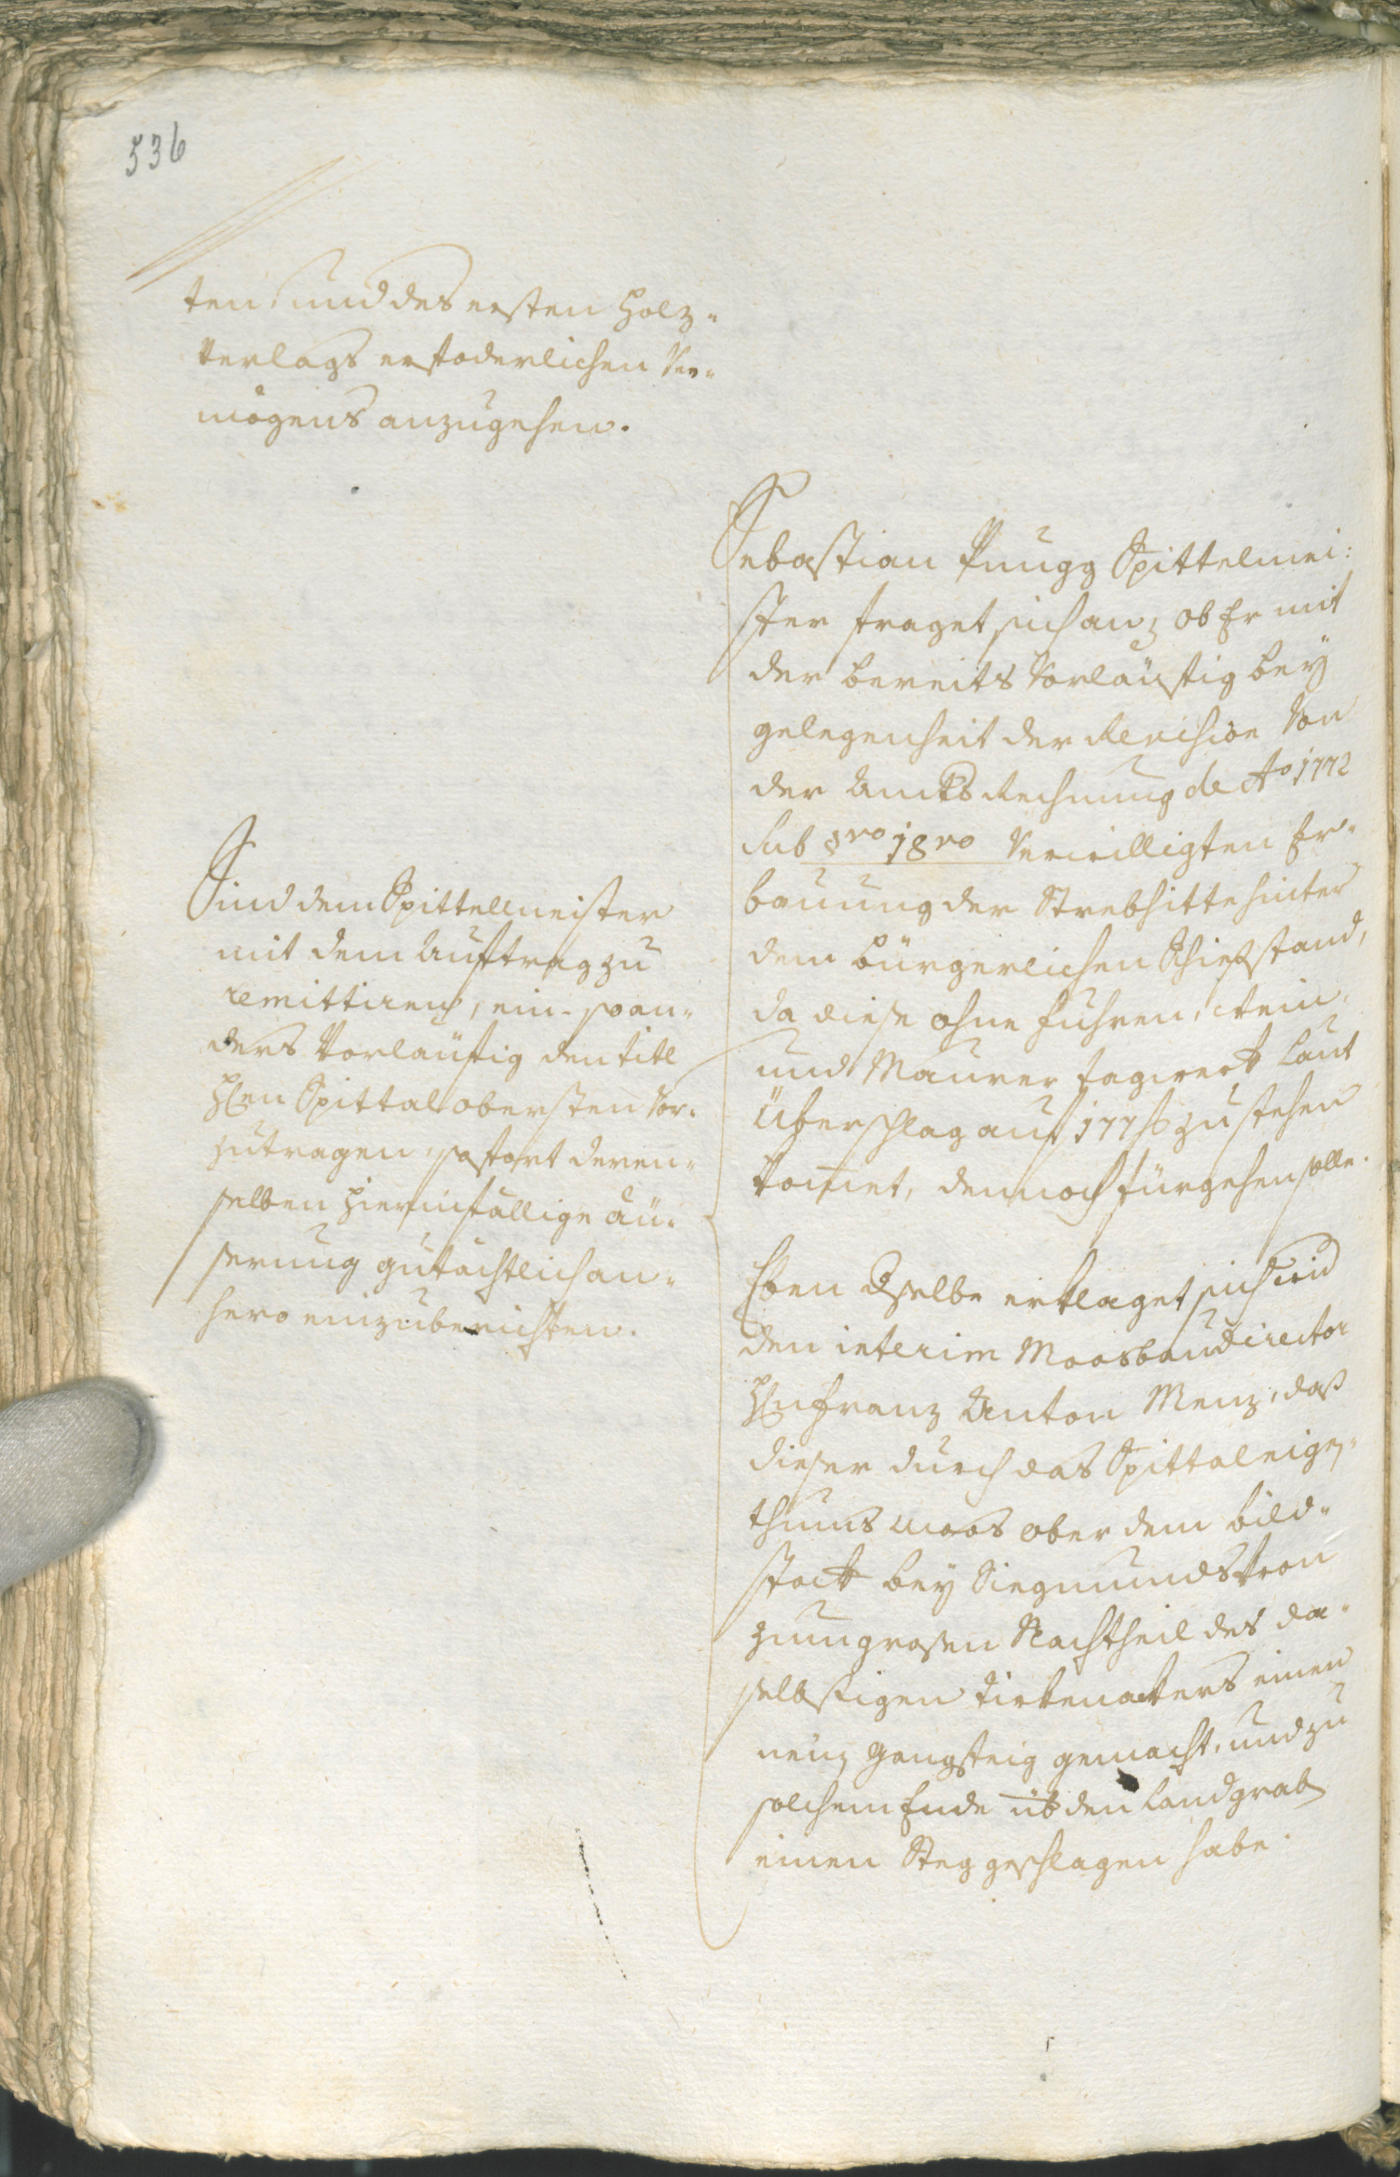 536
ten: und des ersten Holz-
verlags erfoderlichen Ver-
mögens anzugehen.
Sebastian Pungg Spittelmei:
ster fraget sich an, ob Er mit
der bereits vorläufig bey
gelegenheit der Revision von
der Amts Rechnung de Ao 1772
sub 8vo 18vo verwilligten Er-
bauung der Strebhitte hinter
dem bürgerlichen Schießstand,
da diese ohne Fuhren, Stein
und Maurer tagwerk laut
Überschlag auf 177 f zu stehen
kommet, dennoch fürgehen solle.
Sind dem Spittellmeister
mit dem Auftrag zu
remittiren, ein- so an-
ders vorläufig den titl
Hen Spittal obersten vor-
zutragen, sofort deren-
selben hierinfällige äu-
serung gutächtlich an-
hero einzuberichten.
Eben dselbe erklaget sich wid
den interim Moosbaudirector
Hn Franz Anton Menz, daß
dieser durch das Spittal eigen-
thums moos ober dem bild-
stock bey Siegmundskron
zum grosen Nachtheil des da-
selbstigen Tirkenackers einen
neuen gangsteig gemacht, und zu
solchem Ende üb den Landgrab
einen Steg geschlagen habe.